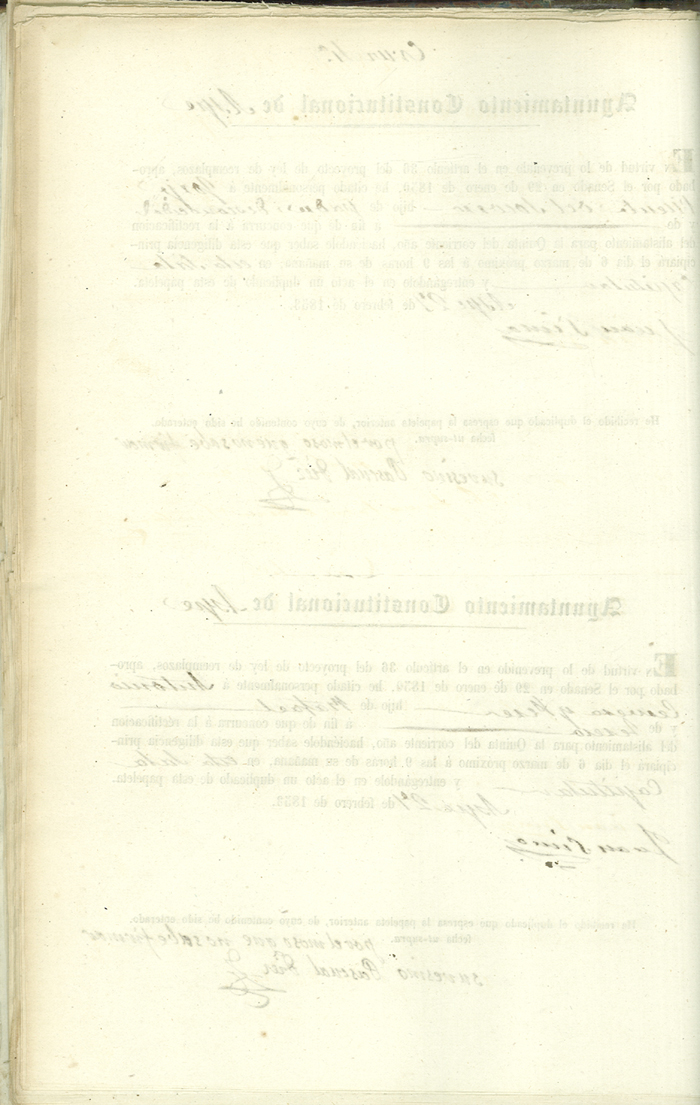 Ayuntamiento Constitucional de Aspe
En virtud de lo prevenido en el artículo 36 del proyecto de ley de reemplazos, apro-
bado por el Senado en 29 de enero de 1859, he citado personalmente á
Vicente hijo de
y de á fin de que concurra á la rectificacion
del alistamiento para la Quinta del corriente año, haciéndole saber que esta diligencia prin-
cipiará el dia 6 de marzo próximo á las 9 horas de su mañana, en esta Sala
Capitular y entregándole en el acto un duplicado de esta papeleta.
Aspe 27 de febrero de 1859.
Juan
He recibido el duplicado que espresa la papeleta anterior, de cuyo contenido he sido enterado.
fecha ut-supra. por el moso que no sabe firmar
su vesino Pascual
Ayuntamiento Constitucional de Aspe
En virtud de lo prevenido en el artículo 36 del proyecto de ley de reemplazos, apro-
bado por el Senado en 29 de enero de 1859, he citado personalmente á Antonio
hijo de Rafael
y de á fin de que concurra á la rectificacion
del alistamiento para la Quinta del corriente año, haciéndole saber que esta diligencia prin-
cipiará el dia 6 de marzo próximo á las 9 horas de su mañana, en esta Sala
Capitular y entregándole en el acto un duplicado de esta papeleta.
Aspe 27 de febrero de 1859.
Juan
He recibido el duplicado que espresa la papeleta anterior, de cuyo contenido he sido enterado.
fecha ut-supra. por el moso que no sabe firmar
su vesino Pascual